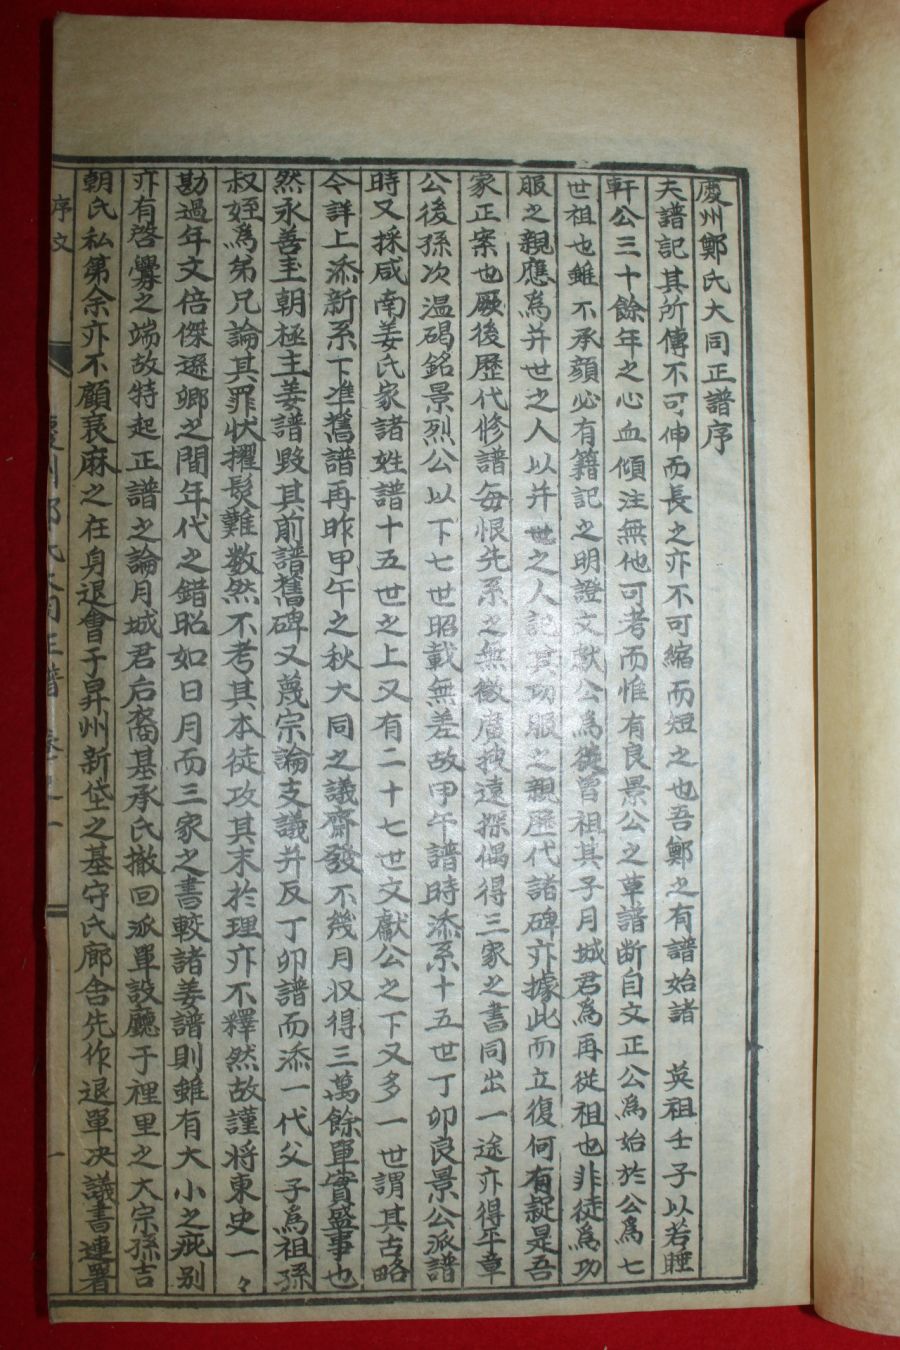 慶州鄭氏大同正譜序
夫譜記其所傳不可伸而長之亦不可縮而短之也吾鄭之有譜始諸 英祖壬子以若睡
軒公三十餘年之心血傾注無他可考而惟有良景公之草譜断自文正公爲始於公爲七
世祖也雖不承顔必有籍記之明證文献公爲從曾祖其子月城君爲再從祖也非徒爲功
服之親應為并世之人以并世之人記其功服之親歷代諸碑亦據此而立復何有疑是吾
家正案也厥後歷代修譜每恨先系之無徵廣搜遠探偶得三家之書同出一途亦得平章
公後孫次温碣銘景烈公以下七世昭載無差故甲午譜時添系十五世丁卯良景公派譜
時又採咸南姜氏家諸姓譜十五世之上又有二十七世文獻公之下又多一世謂其古略
今詳上添新系下準舊譜再昨甲午之秋大同之議齊發不幾月収得三萬餘單實盛事也
然永善主朝極主姜譜毀其前譜舊碑又蔑宗論支議并反丁卯譜而添一代父子為祖孫
叔姪爲弟兄論其罪状擢髮難数然不考其本徒攻其末於理亦不釋然故謹将東史一々
勘過年文倍傑遜卿之間年代之錯昭如日月而三家之書較諸姜譜則雖有大小之疵別
亦有啓釁之端故特起正譜之論月城君后裔基承氏撤回派單設廳于裡里之大宗孫吉
朝氏私第余亦不顧衰麻之在身退會于昇州新垈之基守氏廊舍先作退單决議書連署
序文
慶州鄭氏大同正譜
一